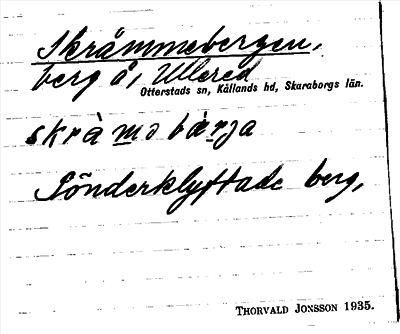 Skråmmebergen,
berg å, Ullered
Otterstads sn, Kållands hd, Skaraborgs län.
skràmobærja
Sönderklyftade berg,
THORVALD JONSSON 1935.